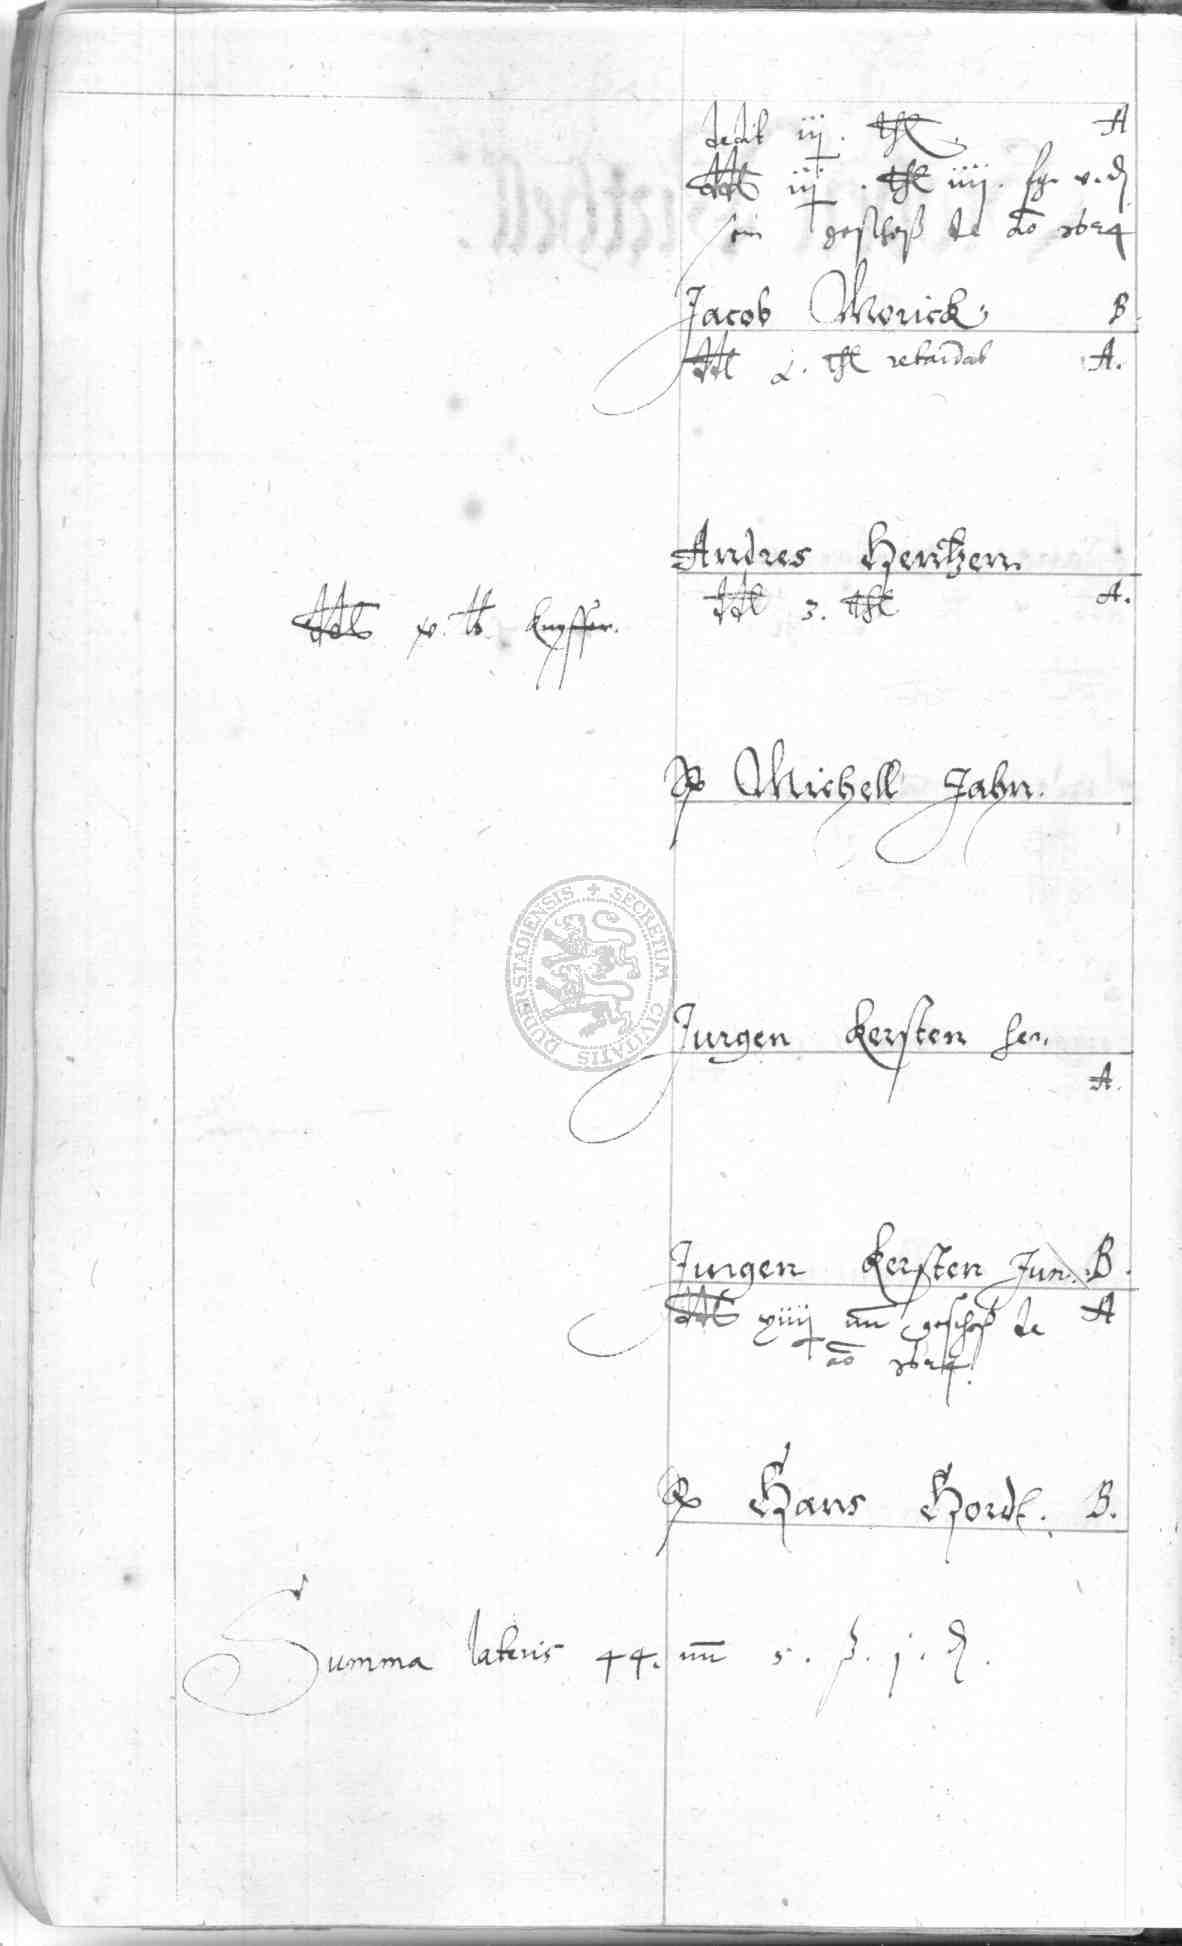 dedit iij. thl. A
ddt iij. thl iiij. sg. v. d
sein geschoß de ao 1624
Jacob Morick B
ddt 2. thl retardat A.
Andres Hentzen
ddt 3. thl A.
ddt x. lb. Kupffer.
Michell Jahn.
SECRETUM CIVITATIS DUDERSTADIENSIS
Jurgen Kersten sen.
A.
Jurgen Kersten Jun. B.
ddt xiiij mr geschoß de A
ao 1624
Hans Hordt. B.
Summa lateris 44. mr 5. ß. j. d.